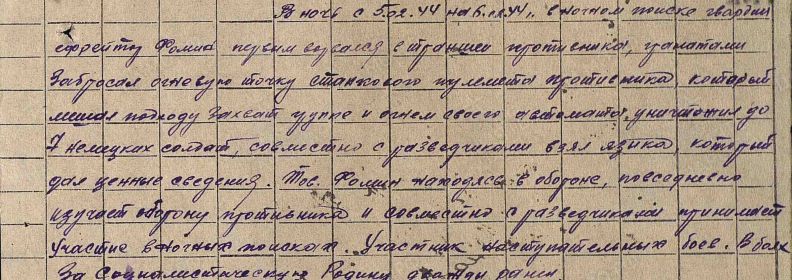 В ночь с 5.02.44 на 6.02.44г. в ночном поиске гвардии
ефрейтор Фомин первым ворвался в траншеи противника, гранатами
забросал огневую точку станкового пулемета противника, который
мешал подходу захват группе и огнем своего автомата уничтожил до
7 немецких солдат, совместно с разведчиками взял языка, который
дал ценные сведения. Тов. Фомин находясь в обороне, повседневно
изучает оборону противника и совместно с разведчиками принимает
участие в ночных поисках. Участник наступательных боев. В боях
за Социалистическую Родину дважды ранен